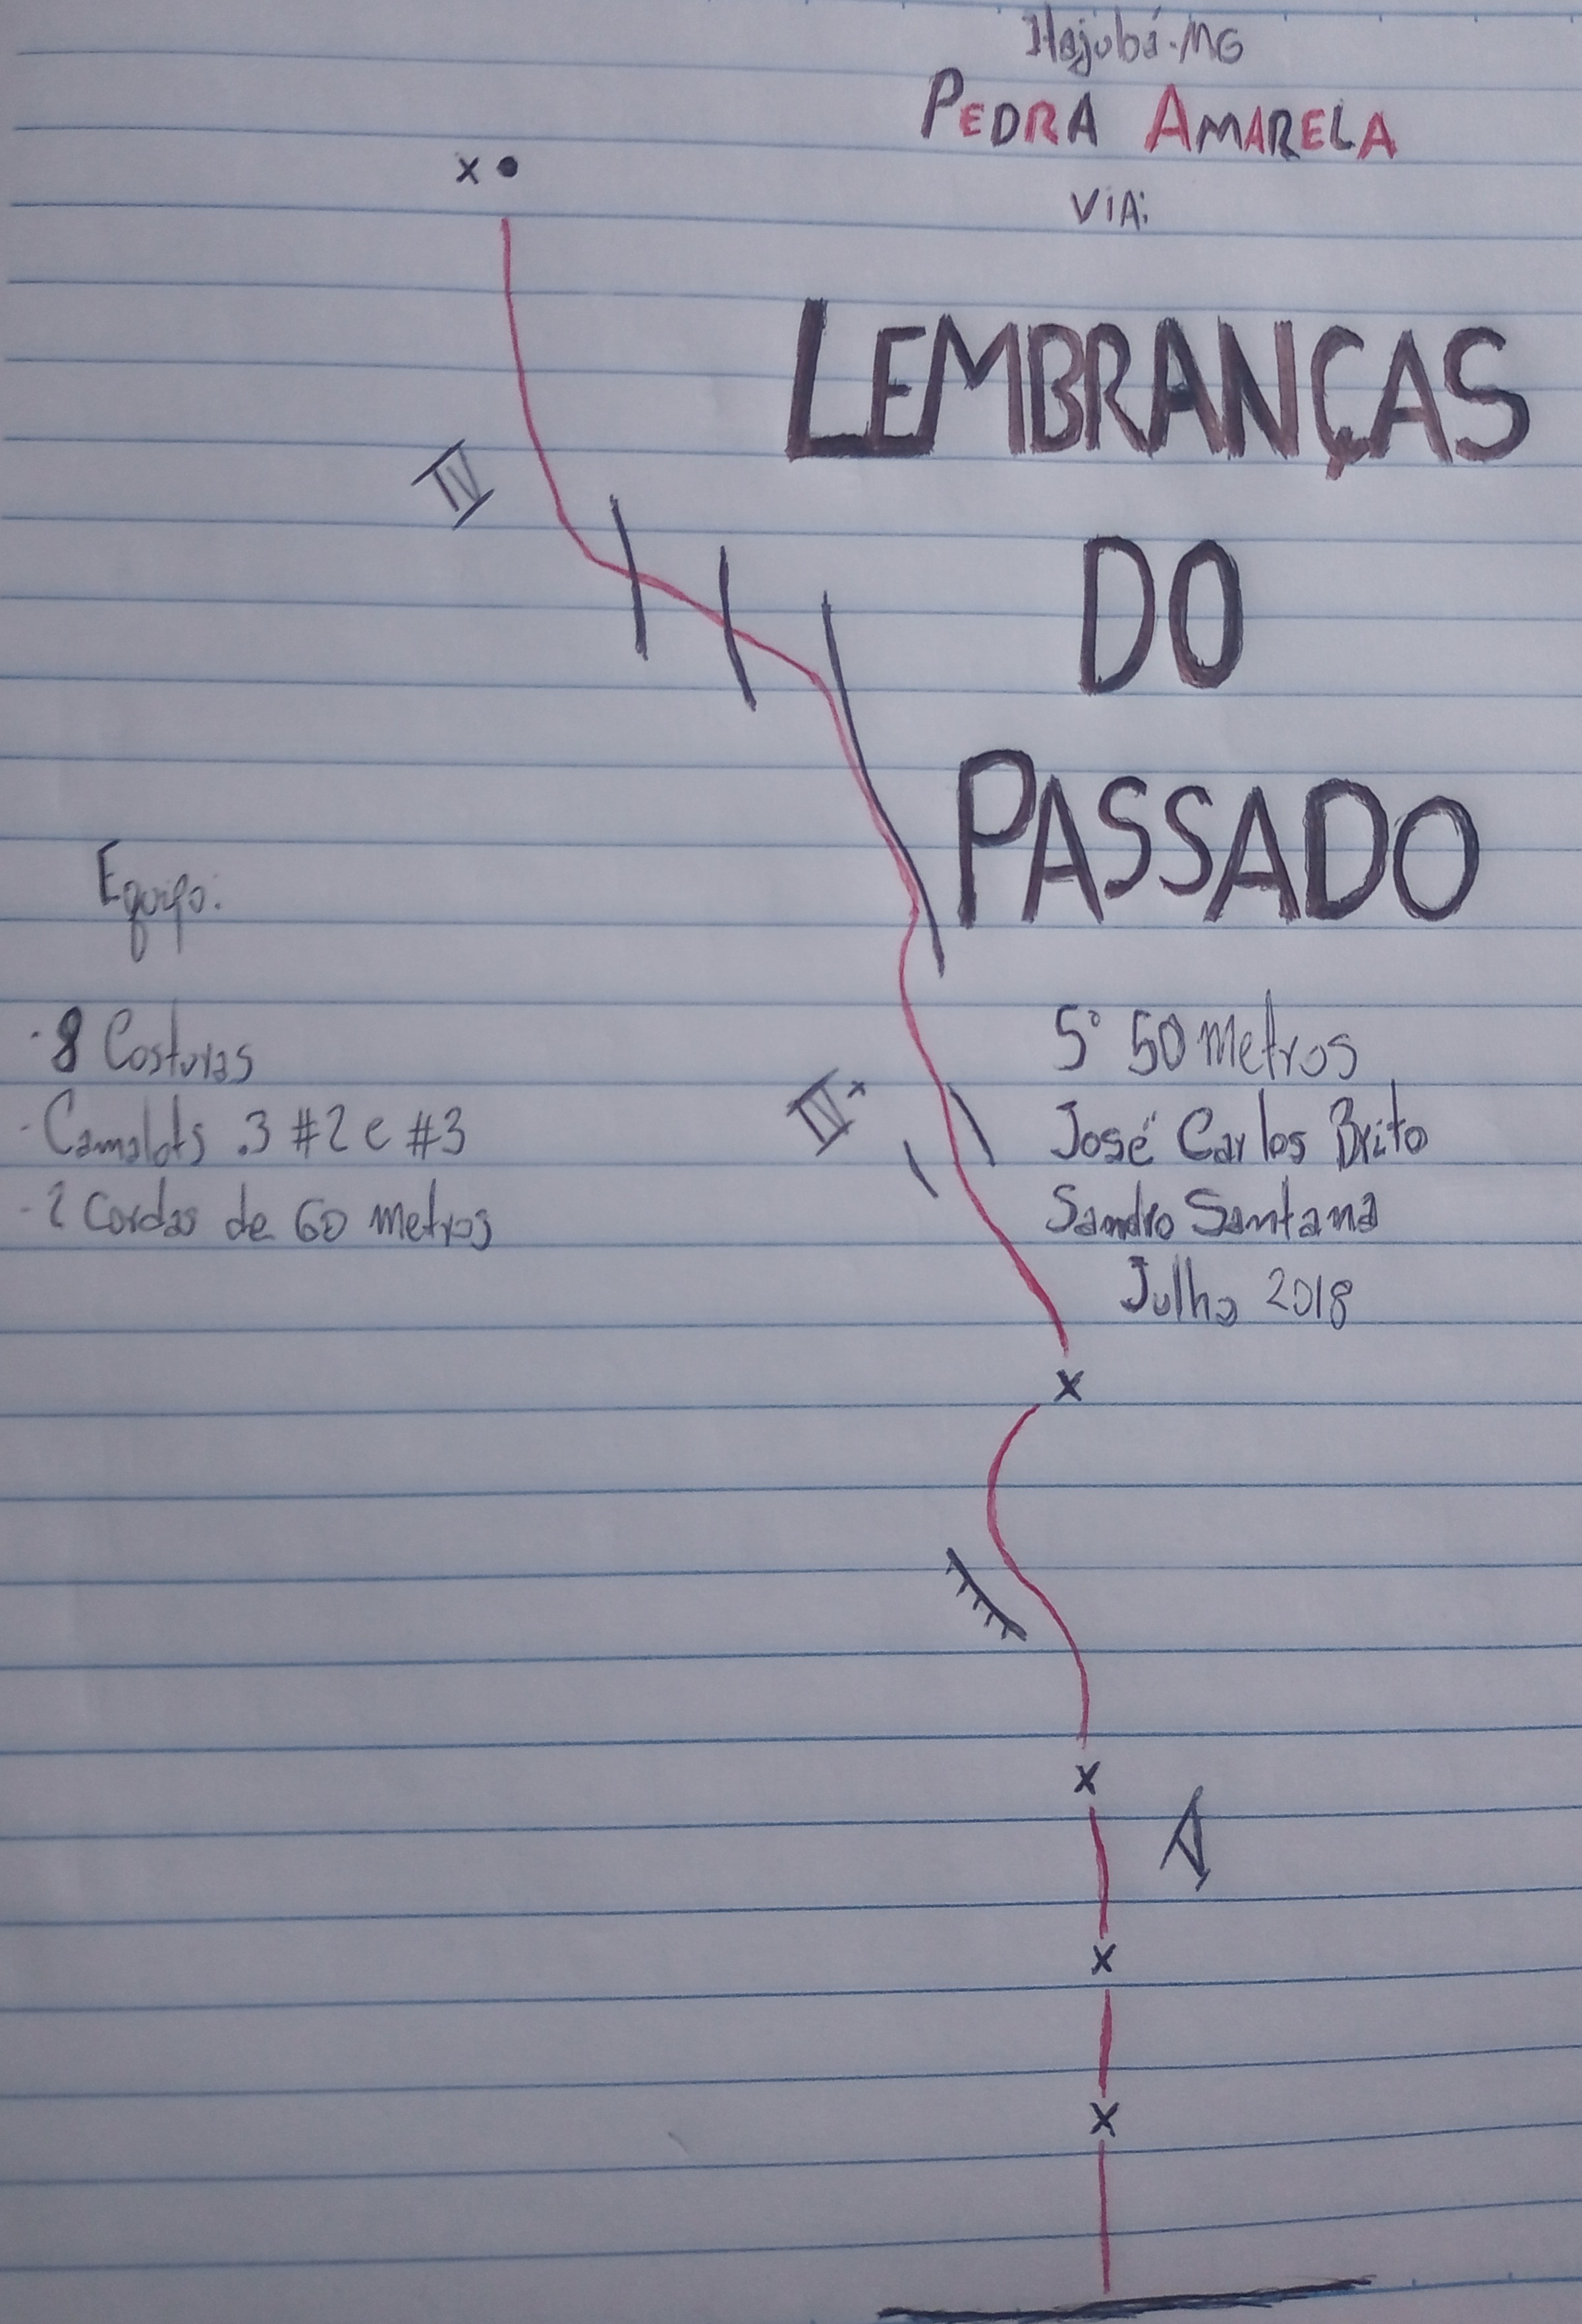 Itajubá-MG
PEDRA AMARELA
VIA:
LEMBRANÇAS
DO
PASSADO
IV
Equipo:
·8 Costuras
·Camalots .3 #2 e #3
·2 Cordas de 60 metros
5° 50 Metros
José Carlos Brito
Sandro Santana
Julho 2018
IV+
x
x
x
x
x